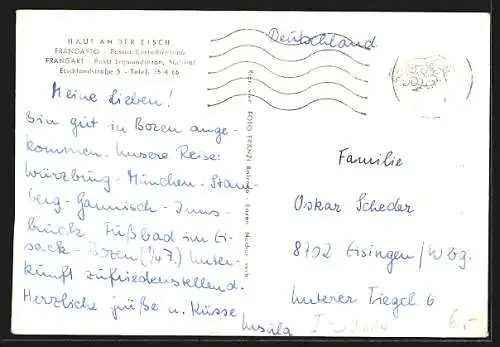 HAUS AN DER EISCH
FRANGARTO - Possa Castelfirmiano
FRANGART - Post Sigmundskron, Südtirol
Etschlandstraße 5 - Telef. 35 4 66
Deutschland
Meine Lieben!
Bin gut in Bozen ange-
kommen. Unsere Reise:
Würzburg - München - Starn-
berg - Garmisch - Inns-
bruck Fußbad im Ei-
sack - Bozen (1/47.) Unter-
kunft zufriedenstellend.
Herzliche Grüße u. Küsse
Ursula
FOTO TRENZI
Familie
Oskar Scheder
8702 Eisingen/Wbg.
Unterer Ziegel 6
6,-